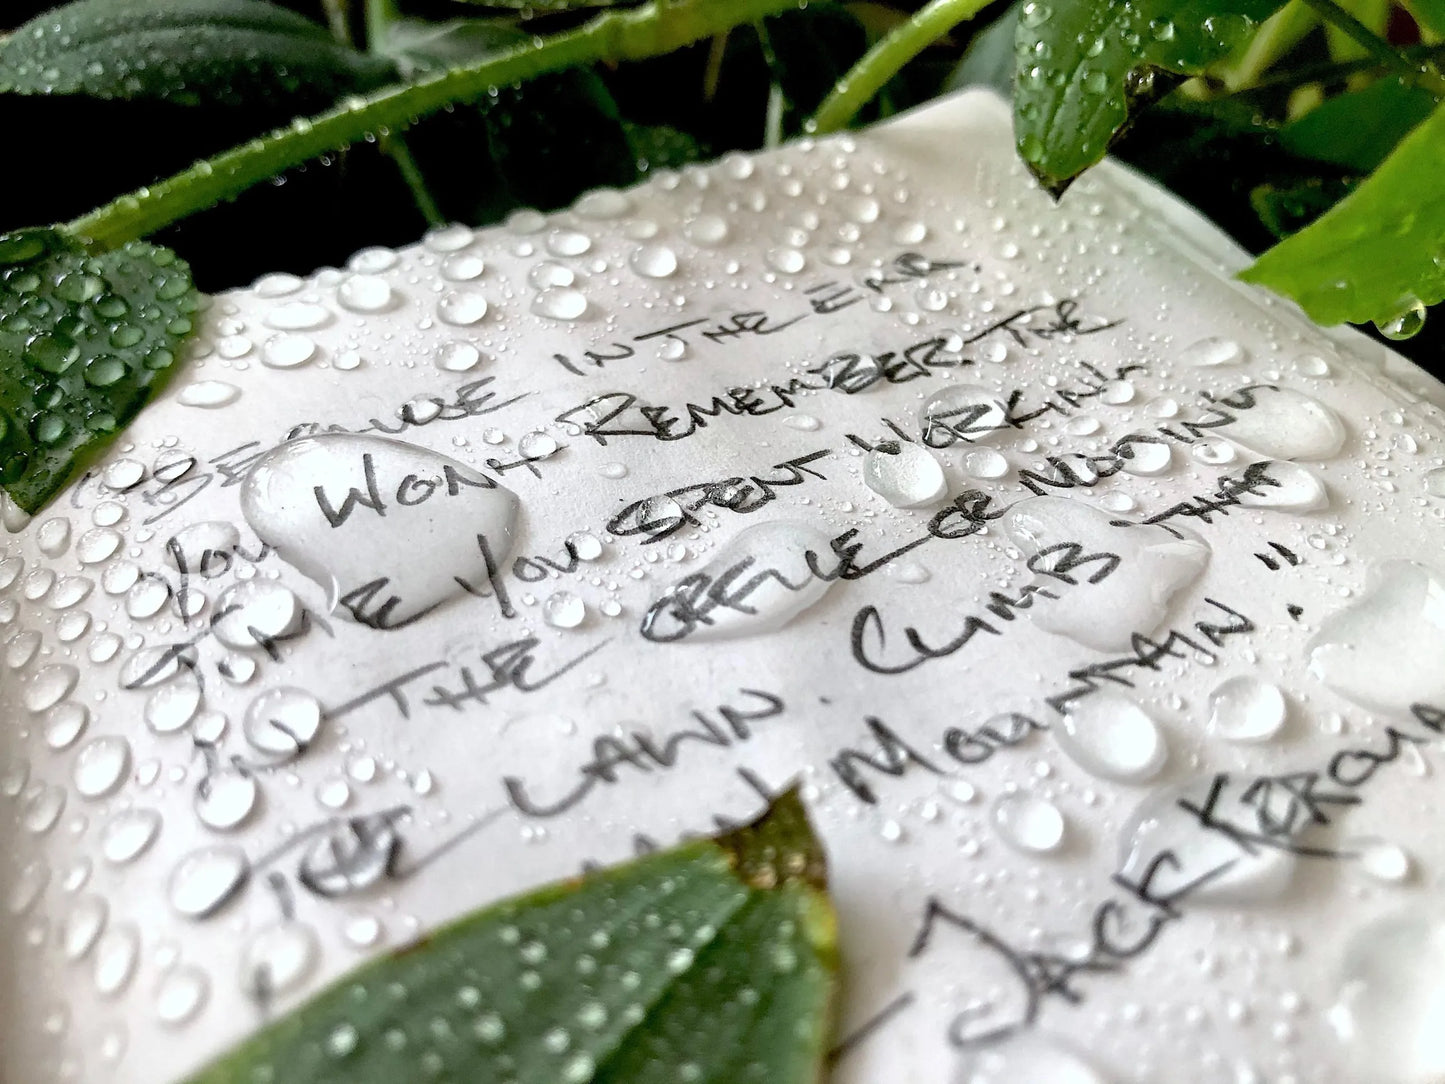 "BECAUSE IN THE END.
YOU WONT REMEMBER THE
TIME YOU SPENT WORKING
IN THE OFFICE OR MOWING
THE LAWN. CLIMB THAT
MOUNTAIN."
- JACK KEROUA